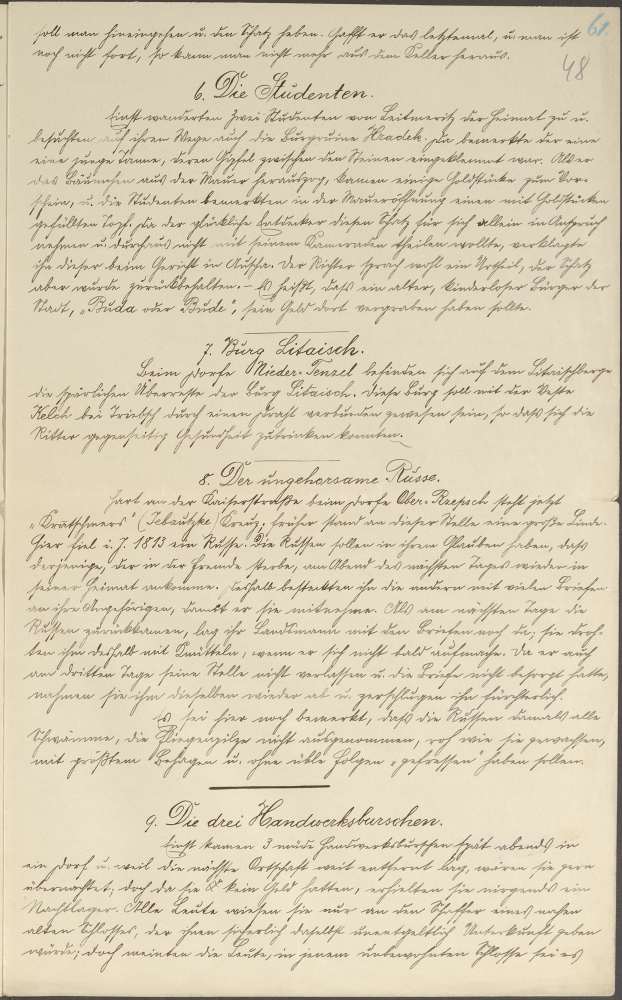 61.
48
soll man hineingehen u. den Schatz heben. Gafft er das letztemal, u. man ist
noch nicht fort, so kann man nicht mehr aus dem Keller heraus.
6. Die Studenten.
Einst wanderten zwei Studenten von Leitmeritz der Heimat zu u.
besuchten auf ihrem Wege auch die Burgruine Hradek. Da bemerkte der eine
eine junge Tanne, deren Gipfel zwischen den Steinen eingeklemmt war. Als er
das Bäumchen aus der Mauer herauszog, kamen einige Goldstücke zum Vor-
schein, u. die Studenten bemerkten in der Maueröffnung einen mit Goldstücken
gefüllten Topf. Da der glückliche Entdecker diesen Schatz für sich allein in Anspruch
nehmen u. durchaus nicht mit seinem Kameraden theilen wollte, verklagte
ihn dieser beim Gericht in Auscha. Der Richter sprach wohl ein Urtheil, der Schatz
aber wurde zurückbehalten. – Es heißt, daß ein alter, kinderloser Bürger der
Stadt, „Buda oder Bude", sein Geld dort vergraben haben sollte.
7. Burg Litaisch.
Beim Dorfe Nieder-Tenzel befinden sich auf dem Litaischberge
die spärlichen Überreste der Burg Litaisch. Diese Burg soll mit der Veste
Kelch bei Triebsch durch einen Draht verbunden gewesen sein, so daß sich die
Ritter gegenseitig Gesundheit zutrinken konnten.
8. Der ungehorsame Russe.
Hart an der Kaiserstraße beim Dorfe Ober-Rzepsch steht jetzt
„Kratschmers" (Tebautzke) Kreuz; früher stand an dieser Stelle eine große Linde.
Hier fiel i. J. 1813 ein Russe. Die Russen sollen in ihrem Glauben haben, daß
derjenige, der in der Fremde sterbe, am Abend des nächsten Tages wieder in
seiner Heimat ankomme. Deshalb besteckten ihn die andern mit vielen Briefen
an ihre Angehörigen, damit er sie mitnehme. Als am nächsten Tage die
Russen zurückkamen, lag ihr Landsmann mit den Briefen noch da; sie droh-
ten ihm deshalb mit Knitteln, wenn er sich nicht bald aufmache. Da er auch
am dritten Tage seine Stelle nicht verlassen u. die Briefe nicht besorgt hatte,
nahmen sie ihm dieselben wieder ab u. zerschlugen ihn fürchterlich.
Es sei hier noch bemerkt, daß die Russen damals alle
Schwämme, die Fliegenpilze nicht ausgenommen, roh wie sie gewachsen,
mit größtem Behagen u. ohne üble Folgen „gefressen" haben sollen.
9. Die drei Handwerksburschen.
Einst kamen 3 müde Handwerksburschen spät abends in
ein Dorf u. weil die nächste Ortschaft weit entfernt lag, wären sie gern
übernachtet; doch da sie kein Geld hatten, erhielten sie nirgends ein
Nachtlager. Alle Leute wiesen sie nur an den Schaffer eines nahen
alten Schlosses, der ihnen sicherlich daselbst unentgeltlich Unterkunft geben
würde; doch meinten die Leute, in jenem unbewohnten Schlosse sei es